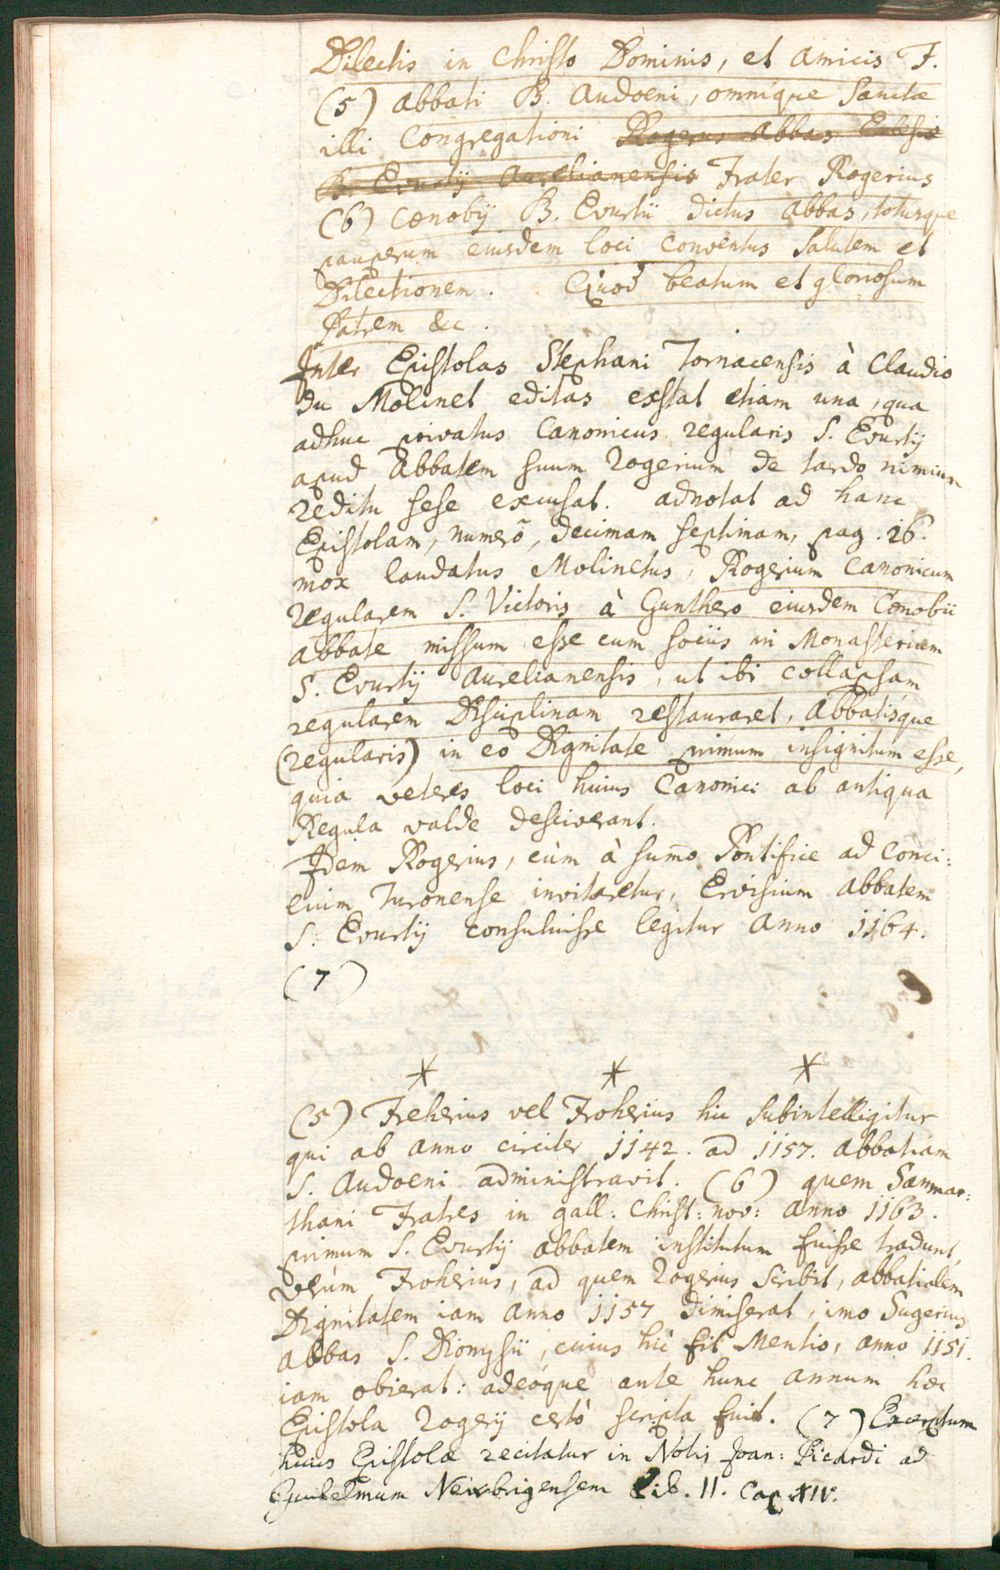 Dilectis in Christo Dominis, et amicis F.
(5) abbati B. Audoeni, omnique Sanctæ
illi Congregationi Rogerus Abbas Eccliæ
B. Evurtij Aurelianensis Frater Rogerius
(6) cœnobij B. Evurtii dictus abbas, totusque
pauperum eiusdem loci conventus Salutem et
Dilectionem. Quod beatum et gloriosum
Patrem &c.
Inter Epistolas Stephani Tornacensis à Claudio
du Molinet editas exstat etiam una, qua
adhuc privatus Canonicus regularis S. Evurtij
apud Abbatem suum Rogerium de tardo nimium
reditu sese excusat. adnotat ad hanc
Epistolam, numero, decimam septimam, pag. 26.
mox laudatus Molinetus, Rogerium Canonicum
regularem S. Victoris à Gunthero eiusdem Cœnobii
abbate missum esse cum sociis in Monasterium
S. Evurtij Aurelianensis, ut ibi collapsam
regularem Disciplinam restauraret, Abbatisque
(regularis) in eo Dignitate primum insignitum esse,
quia veteres loci huius Canonici ab antiqua
Regula valde desciverant.
Idem Rogerius, cùm à sum̄o Pontifice ad Conci:
lium Turonense invitaretur, Ervisium abbatem
S. Evurtij consuluisse legitur Anno 1164.
(7)
* * *
(5) Freherius vel Froherius hic subintelligitur
qui ab anno circiter 1142. ad 1157. abbatiam
S. Audoeni administravit. (6) quem Sammar:
thani Fratres in gall: Christ: nov: anno 1163.
primum S. Evurtij abbatem institutum fuisse tradunt,
verùm Froherius, ad quem Rogerius scribit, abbatialem
Dignitatem iam anno 1157 dimiserat, imo Sugerius
abbas S. Dionysii, cuius hìc fit Mentio, anno 1151.
iam obierat: adeóque ante hunc annum hæc
Epistola Rogerij certò scripta fuit. (7) Excerptum
huius Epistolæ recitatur in Notis Joan: Picardi ad
Guilelmum Neubrigensem Lib. II. Cap. XIV.